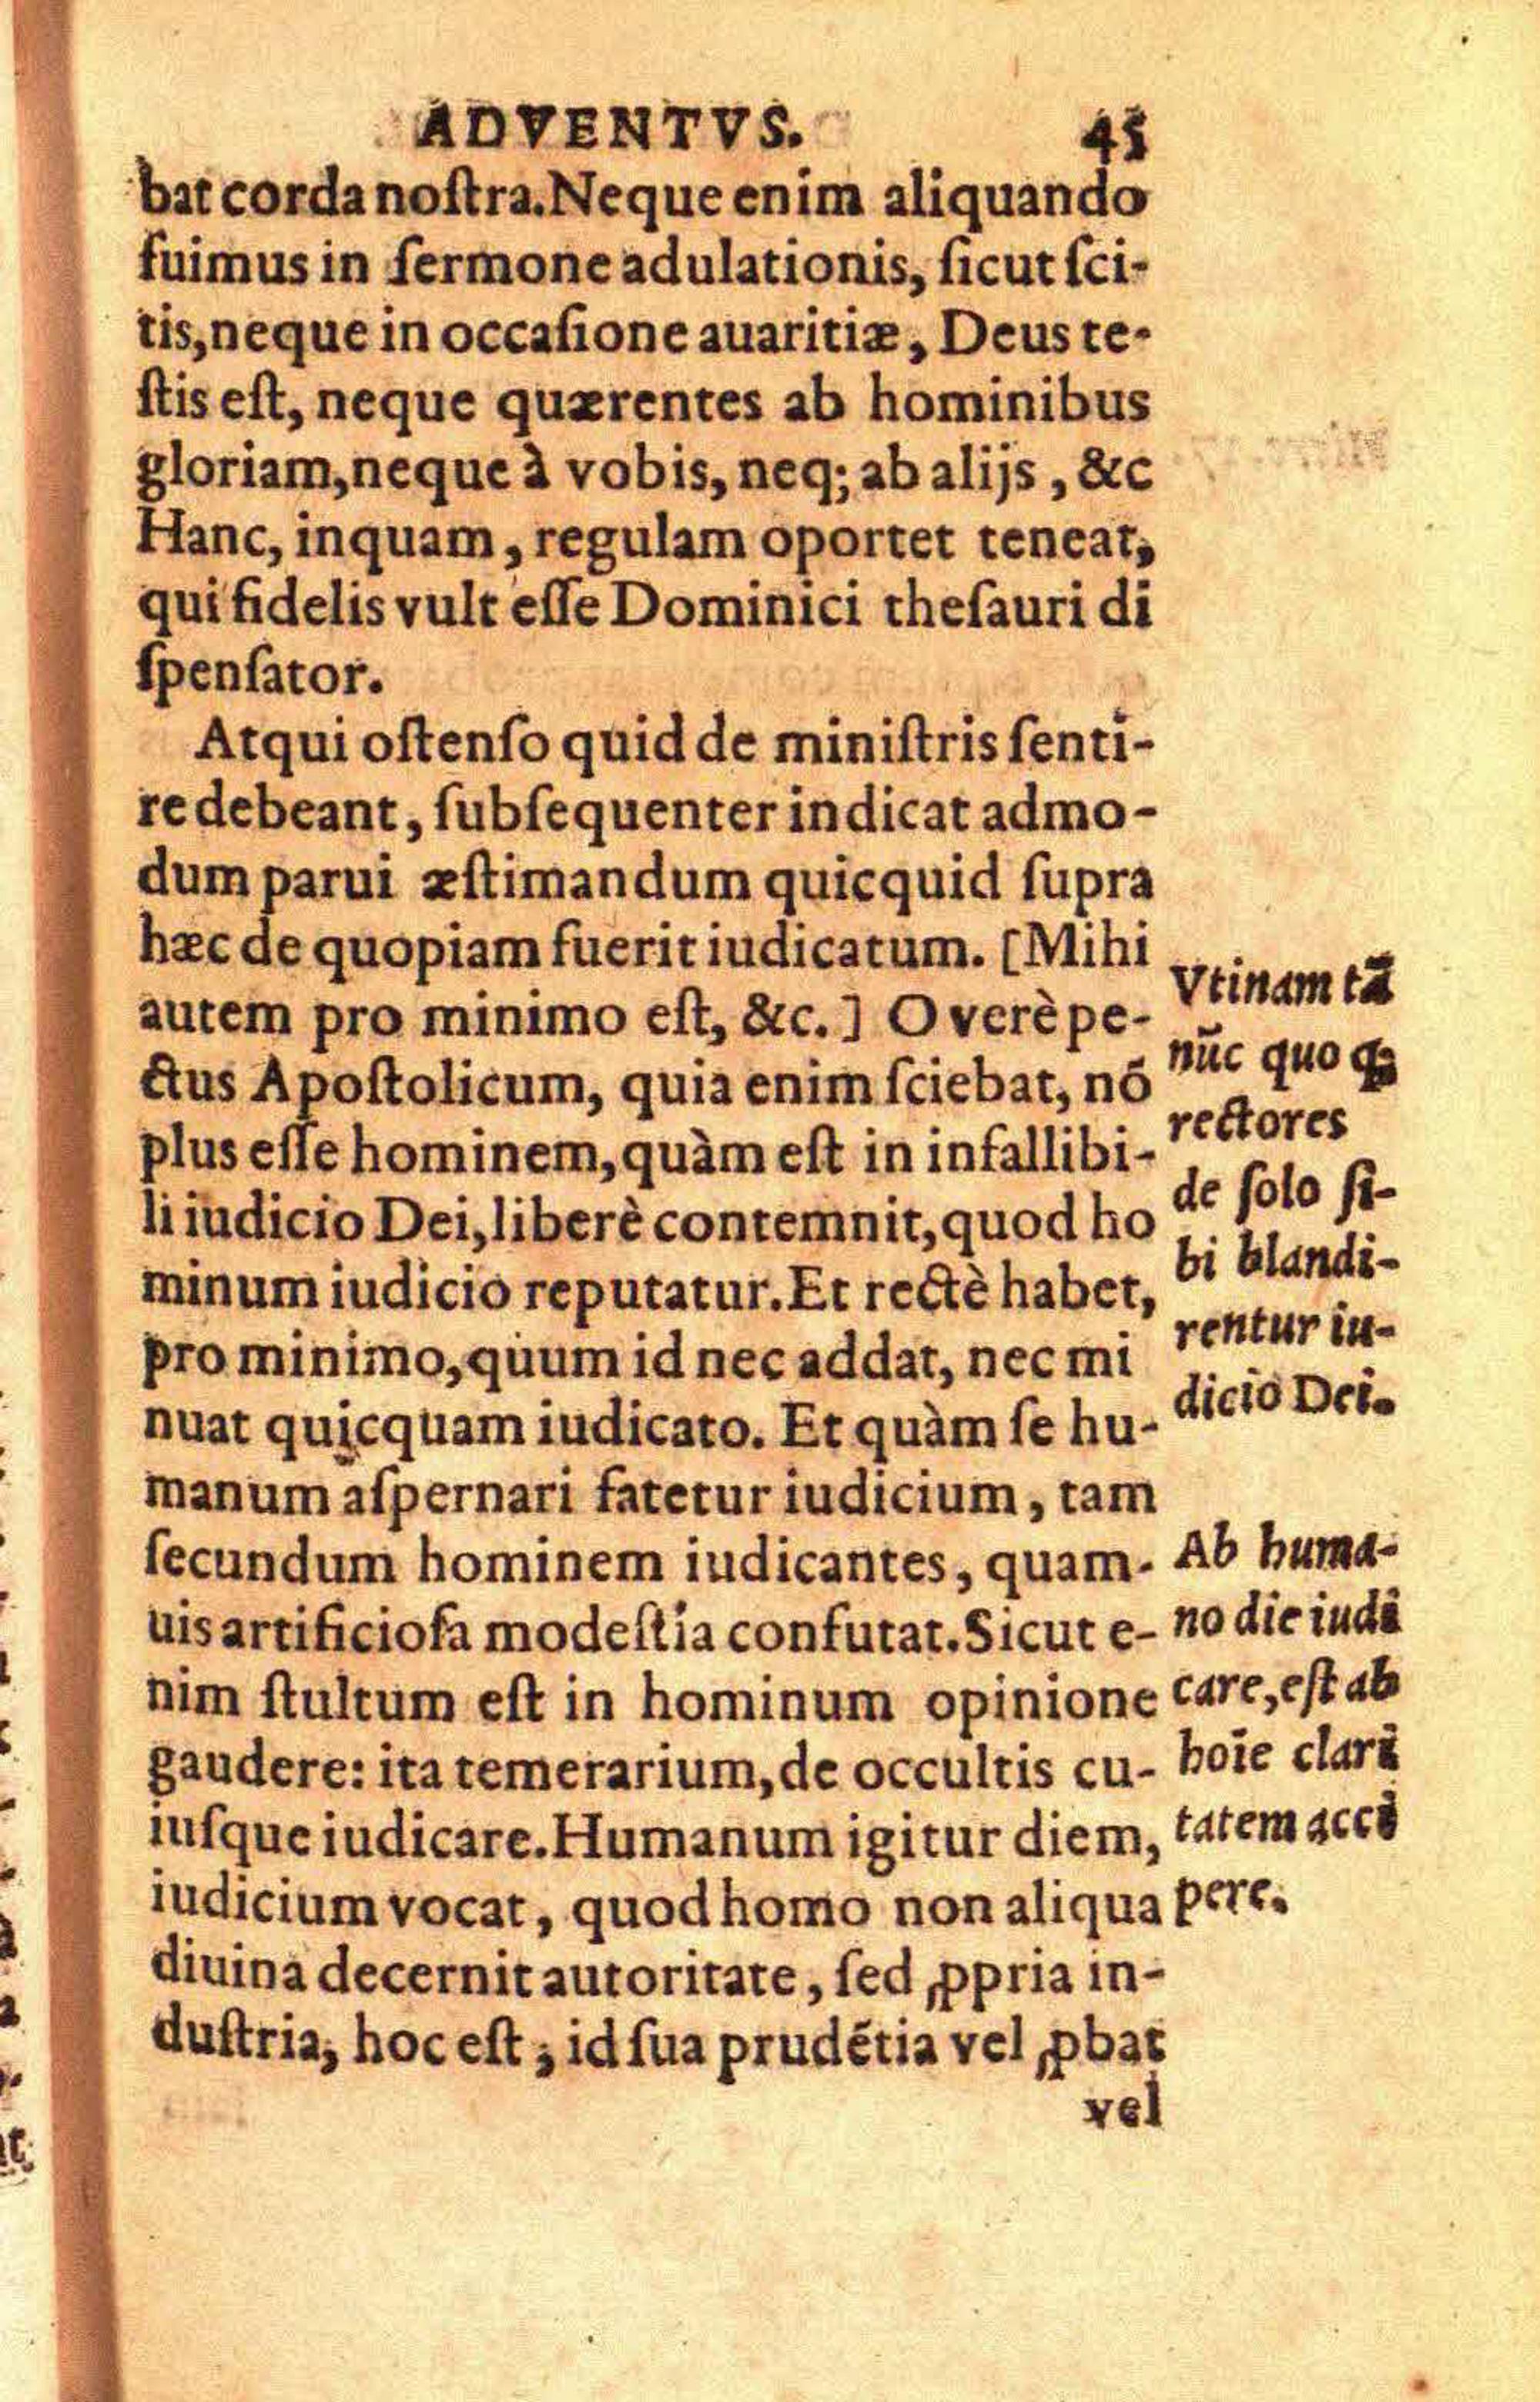 ADVENTVS. 45
bat corda noſtra. Neque enim aliquando
fuimus in ſermone adulationis, ſicut ſci-
tis, neque in occaſione auaritiæ, Deus te-
ſtis eſt, neque quærentes ab hominibus
gloriam, neque à vobis, neq; ab alijs, &c
Hanc, inquam, regulam oportet teneat,
qui fidelis vult eſſe Dominici theſauri di
ſpenſator.
Atqui oſtenſo quid de miniſtris ſenti-
re debeant, ſubſequenter indicat admo-
dum parui æſtimandum quicquid ſupra
hæc de quopiam fuerit iudicatum. [Mihi
autem pro minimo eſt, &c.] O verè pe-
ctus Apoſtolicum, quia enim ſciebat, nõ
plus eſſe hominem, quàm eſt in infallibi-
li iudicio Dei, liberè contemnit, quod ho
minum iudicio reputatur. Et rectè habet,
pro minimo, quum id nec addat, nec mi
nuat quicquam iudicato. Et quàm ſe hu-
manum aſpernari fatetur iudicium, tam
ſecundum hominem iudicantes, quam-
uis artificioſa modeſtia confutat. Sicut e-
nim ſtultum eſt in hominum opinione
gaudere: ita temerarium, de occultis cu-
iuſque iudicare. Humanum igitur diem,
iudicium vocat, quod homo non aliqua
diuina decernit autoritate, ſed ꝓpria in-
duſtria, hoc eſt, id ſua prudẽtia vel ꝓbat
vel
Vtinam tã
nũc quo qꝫ
rectores
de ſolo ſi-
bi blandi-
rentur iu-
dicio Dei.
Ab huma-
no die iudi
care, eſt ab
hoīe clari
tatem acci
pere.